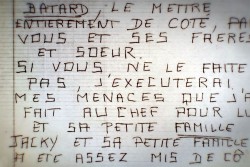 BATARD, LE METTRE
ENTIEREMENT DE COTE, PA
VOUS ET SES FRERES
ET SOEUR.
SI VOUS NE LE FAITE
PAS, J'EXECUTERAI
MES MENACES QUE J'A
FAIT AU CHEF POUR LU
ET SA PETITE FAMILLE
JACKY ET SA PETITE FAMILLE
A ETE ASSEZ MIS DE C